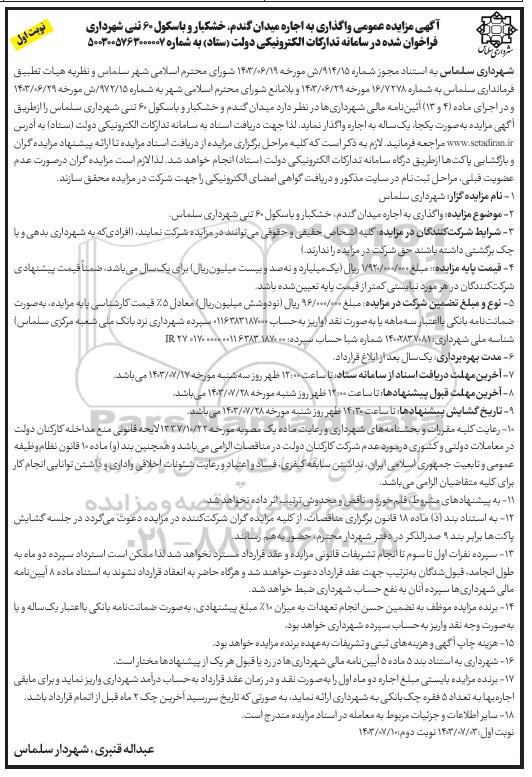 آگهی مزایده عمومی واگذاری به اجاره میدان گندم، خشکبار و باسکول ۶۰ تنی شهرداری
فراخوان شده در سامانه تدارکات الکترونیکی دولت (ستاد) به شماره ۵۰۰۳۰۰۵۷۶۳۰۰۰۰۰۷
نوبت اول
شهرداری سلماس
شهرداری سلماس به استناد مجوز شماره ۹۱۴/۱۵/ش مورخه ۱۴۰۳/۰۶/۱۹ شورای محترم اسلامی شهر سلماس و نظریه هیات تطبیق
فرمانداری سلماس به شماره ۱۶/۷۲۷۸ مورخه ۱۴۰۳/۰۶/۲۹ و بلامانع شورای محترم اسلامی شهر به شماره ۹۷۲/۱۵/ش مورخه ۱۴۰۳/۰۶/۲۹
و در اجرای ماده (۴ و ۱۳) آئین‌نامه مالی شهرداری‌ها در نظر دارد میدان گندم و خشکبار و باسکول ۶۰ تنی شهرداری سلماس را ازطریق
آگهی مزایده به‌صورت یکجا، یک‌ساله به اجاره واگذار نماید. لذا جهت دریافت اسناد به سامانه تدارکات الکترونیکی دولت (ستاد) به آدرس
www.setadiran.ir مراجعه فرمانید. لازم به ذکر است که کلیه مراحل برگزاری مزایده از دریافت اسناد مزایده تا ارائه پیشنهاد مزایده گران
و بازگشایی پاکت‌ها ازطریق درگاه سامانه تدارکات الکترونیکی دولت (ستاد) انجام خواهد شد. لذا لازم است مزایده گران درصورت عدم
عضویت قبلی، مراحل ثبت‌نام در سایت مذکور و دریافت گواهی امضای الکترونیکی را جهت شرکت در مزایده محقق سازند.
۱- نام مزایده گزار: شهرداری سلماس
۲- موضوع مزایده: واگذاری به اجاره میدان گندم، خشکبار و باسکول ۶۰ تنی شهرداری سلماس.
۳- شرایط شرکت‌کنندگان در مزایده: کلیه اشخاص حقیقی و حقوقی می‌توانند در مزایده شرکت نمایند، (افرادی‌که به شهرداری بدهی و یا
چک برگشتی داشته باشند حق شرکت در مزایده را ندارند.)
۴- قیمت پایه مزایده: مبلغ ۱/۹۲۰/۰۰۰/۰۰۰ ریال (یک‌میلیارد و نه‌صد و بیست میلیون‌ریال) برای یک‌سال می‌باشد، ضمناً قیمت پیشنهادی
شرکت‌کنندگان در هر مورد نبایستی کمتر از قیمت پایه تعیین‌شده باشد.
۵- نوع و مبلغ تضمین شرکت در مزایده: مبلغ ۹۶/۰۰۰/۰۰۰ ریال (نودوشش میلیون‌ریال) معادل ۵٪ قیمت کارشناسی پایه مزایده، به‌صورت
ضمانت‌نامه بانکی بااعتبار سه‌ماهه یا به‌صورت نقد (واریز به‌حساب ۰۱۱۶۳۸۳۱۸۷۰۰۰ سپرده شهرداری نزد بانک ملی شعبه مرکزی سلماس)
شناسه ملی شهرداری: ۱۴۰۰۲۸۳۷۰۸۱ شماره شبا حساب سپرده: IR ۲۷ ۰۱۷۰ ۰۰۰۰ ۰۰۱۱ ۶۳۸۳ ۱۸۷۰ ۰۰
۶- مدت بهره‌برداری: یک‌سال بعد از ابلاغ قرارداد.
۷- آخرین مهلت دریافت اسناد از سامانه ستاد: تا ساعت ۱۲:۰۰ ظهر روز سه‌شنبه مورخه ۱۴۰۳/۰۷/۱۷ می‌باشد.
۸- آخرین مهلت قبول پیشنهادها: تا ساعت ۱۲:۰۰ ظهر روز شنبه مورخه ۱۴۰۳/۰۷/۲۸ می‌باشد.
۹- تاریخ گشایش پیشنهادها: تا ساعت ۱۴:۳۰ ظهر روز شنبه مورخه ۱۴۰۳/۰۷/۲۸ می‌باشد.
۱۰- رعایت کلیه مقررات و بخشنامه‌های شهرداری و رعایت ماده یک مصوبه مورخه ۱۳۳۷/۱۰/۲۲ لایحه قانونی منع مداخله کارکنان دولت
در معاملات دولتی و کشوری درمورد عدم شرکت کارکنان دولت در مناقصات الزامی می‌باشد و همچنین بند (و) ماده ۱۰ قانون نظام‌وظیفه
عمومی و تابعیت جمهوری اسلامی ایران، نداشتن سابقه کیفری، فساد و اعتیاد و رعایت شئونات اخلاقی و اداری و داشتن توانایی انجام کار
برای کلیه متقاضیان الزامی می‌باشد.
۱۱- به پیشنهادهای مشروط، قلم‌خورده، ناقص و مخدوش ترتیب اثر داده نخواهد شد.
۱۲- به استناد بند (د) ماده ۱۸ قانون برگزاری مناقصات، از کلیه مزایده گران شرکت‌کننده در مزایده دعوت می‌گردد در جلسه گشایش
پاکت‌ها برابر بند ۹ صدرالذکر در دفتر شهردار محترم، حضور به‌هم رسانند.
۱۳- سپرده نفرات اول تا سوم تا انجام تشریفات قانونی مزایده و عقد قرارداد مسترد نخواهد شد لذا ممکن است استرداد سپرده دو ماه به
طول انجامد، قبول‌شدگان به‌ترتیب جهت عقد قرارداد دعوت خواهند شد و هرگاه حاضر به انعقاد قرارداد نشوند به استناد ماده ۸ آیین‌نامه
مالی شهرداری‌ها سپرده آنان به نفع حساب شهرداری ضبط خواهد شد.
۱۴- برنده مزایده موظف به تضمین حسن انجام تعهدات به میزان ۱۰٪ مبلغ پیشنهادی، به‌صورت ضمانت‌نامه بانکی بااعتبار یک‌ساله و یا
به‌صورت وجه نقد واریز به‌حساب سپرده شهرداری خواهد بود.
۱۵- هزینه چاپ آگهی و هزینه‌های ثبتی و تشریفات به‌عهده برنده مزایده خواهد بود.
۱۶- شهرداری به استناد بند ۵ ماده ۵ آیین‌نامه مالی شهرداری‌ها در رد یا قبول هر یک از پیشنهادها مختار است.
۱۷- برنده مزایده بایستی مبلغ اجاره دو ماه اول را به‌صورت نقد و در زمان عقد قرارداد به‌حساب درآمد شهرداری واریز نماید و برای مابقی
اجاره‌بها به تعداد ۵ فقره چک‌بانکی به شهرداری ارائه نماید، به صورتی که تاریخ سررسید آخرین چک ۲ ماه قبل از اتمام قرارداد باشد.
۱۸- سایر اطلاعات و جزئیات مربوط به معامله در اسناد مزایده مندرج است.
نوبت اول: ۱۴۰۳/۰۷/۰۳ نوبت دوم: ۱۴۰۳/۰۷/۱۰
عبداله قنبری، شهردار سلماس